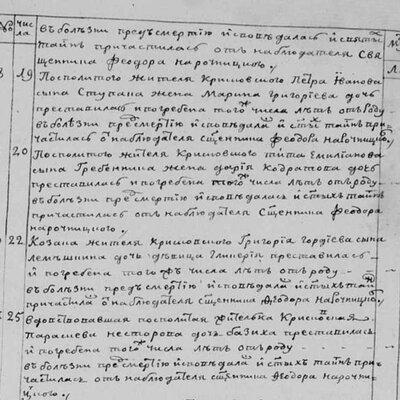 чис
ла
въ болѣзни предъ смертию исповѣдалась и святыхъ
тайнъ причастилась отъ наблюдателя Свя
щенника Феодора нарочницкого
19 Посполитого жителя Крисовского Петра Иванова
сына Ступака жена Марина Григориева дочь
преставилась и погребена того числа лѣтъ отъ роду
въ болѣзни пред смертию исповѣдалась и стыхъ тайнъ при
частилась отъ наблюдателя Сщенника Феодора нарочницкого
20 Посполитого жителя Крисовского Тита Емилианова
сына Гребенника жена Кодратова дочь
преставилась и погребена того числа лѣтъ отъ роду
въ болѣзни пред смертию исповѣдалась и стыхъ тайнъ
причастилась отъ наблюдателя Сщенника Феодора
нарочницкого
22 Козака жителя Крисовского Григория Гордѣева сына
дочь дѣвица Гликерия преставилась
и погребена того ж числа лѣтъ отъ роду
въ болѣзни пред смертию исповѣдалась и стыхъ тайнъ
причастилась отъ наблюдателя сщенника Феодора нарочницкого
25 вдовствовавшая посполитая жителька Крисовская
Параскева Несторова дочь преставилась
и погребена того числа лѣтъ отъ роду
въ болѣзни пред смертию исповѣдалась и стыхъ тайнъ при
частилась отъ наблюдателя сщенника Феодора нарочни
цкого